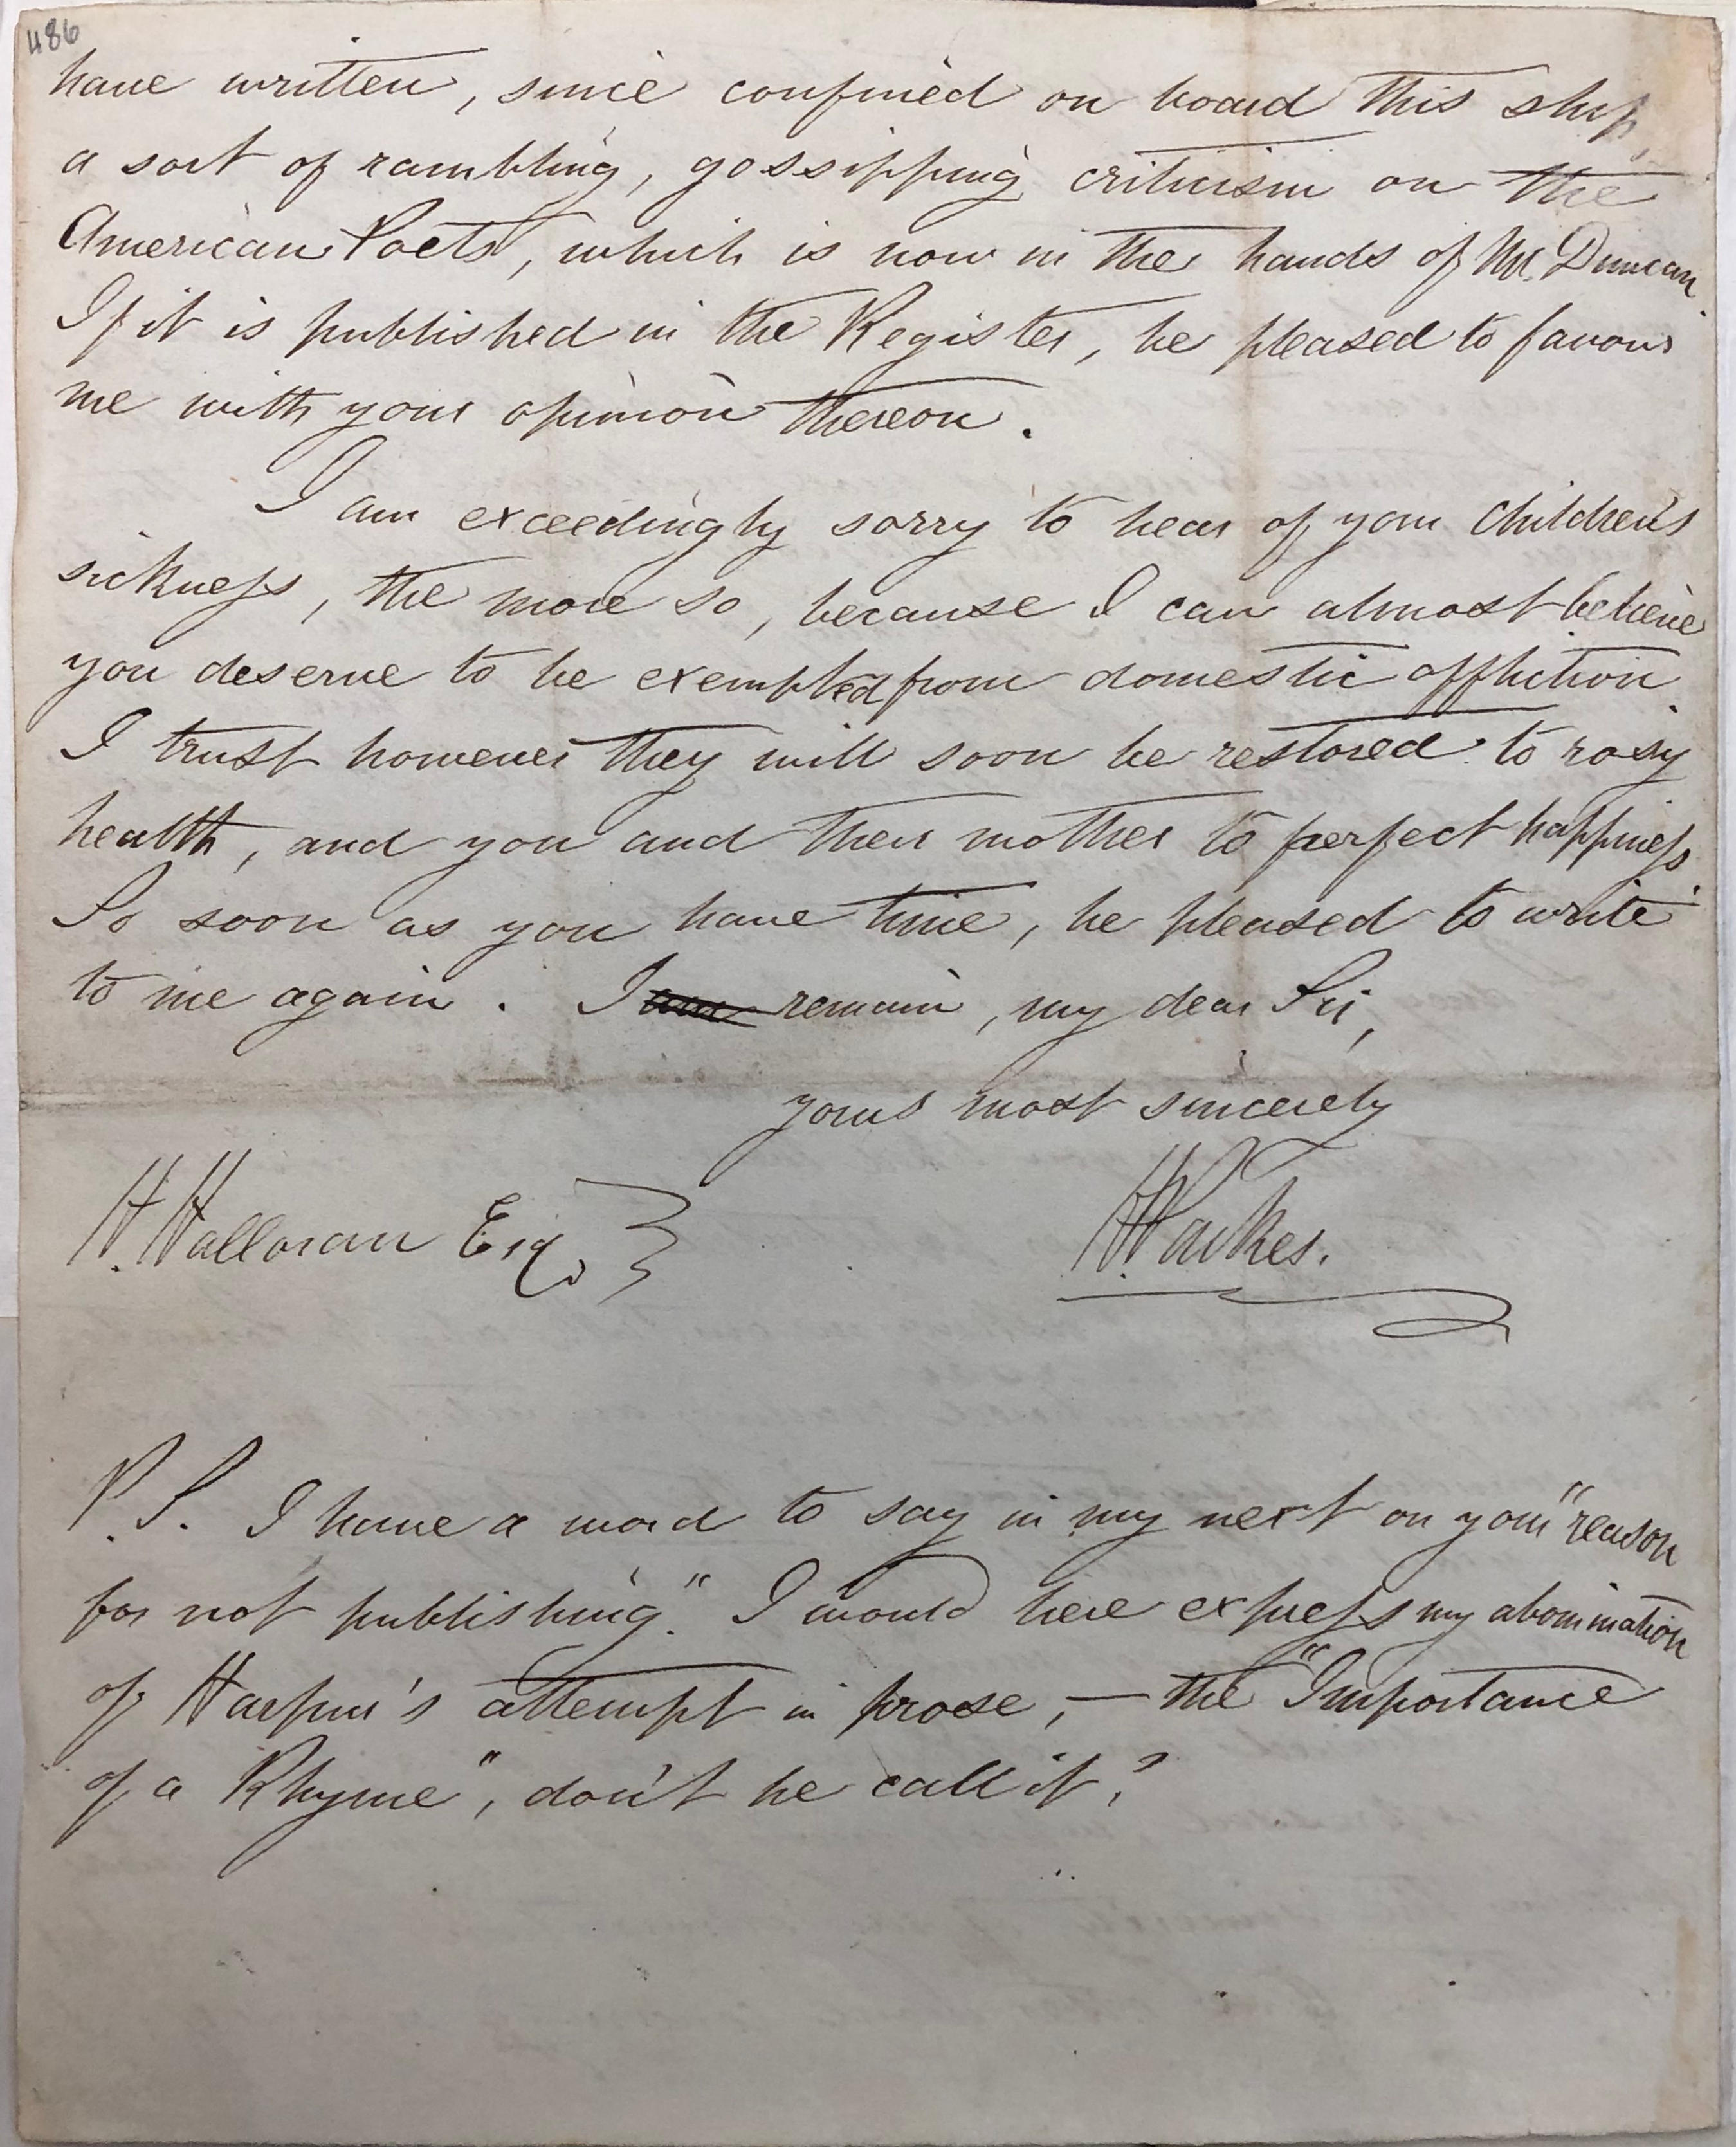 486
have written, since confined on board this ship,
a sort of rambling, gossipping criticism on the
American Poets, which is now in the hands of Mr. Duncan.
If it is published in the Register, be pleased to favour
me with your opinion thereon.
I am exceedingly sorry to hear of your children's
sickness, the more so, because I can almost believe
you deserve to be exempted from domestic affliction.
I trust however they will soon be restored to rosy
health, and you and their mother to perfect happiness.
So soon as you have time, be pleased to write
to me again. I am remain, my dear Sir,
yours most sincerely
H. Halloran Esq. }
H. Parkes.
P.S. I have a word to say in my next on your "reason
for not publishing." I would here express my abomination
of Harpur's attempt in prose, — the "Importance
of a Rhyme", don't he call it?